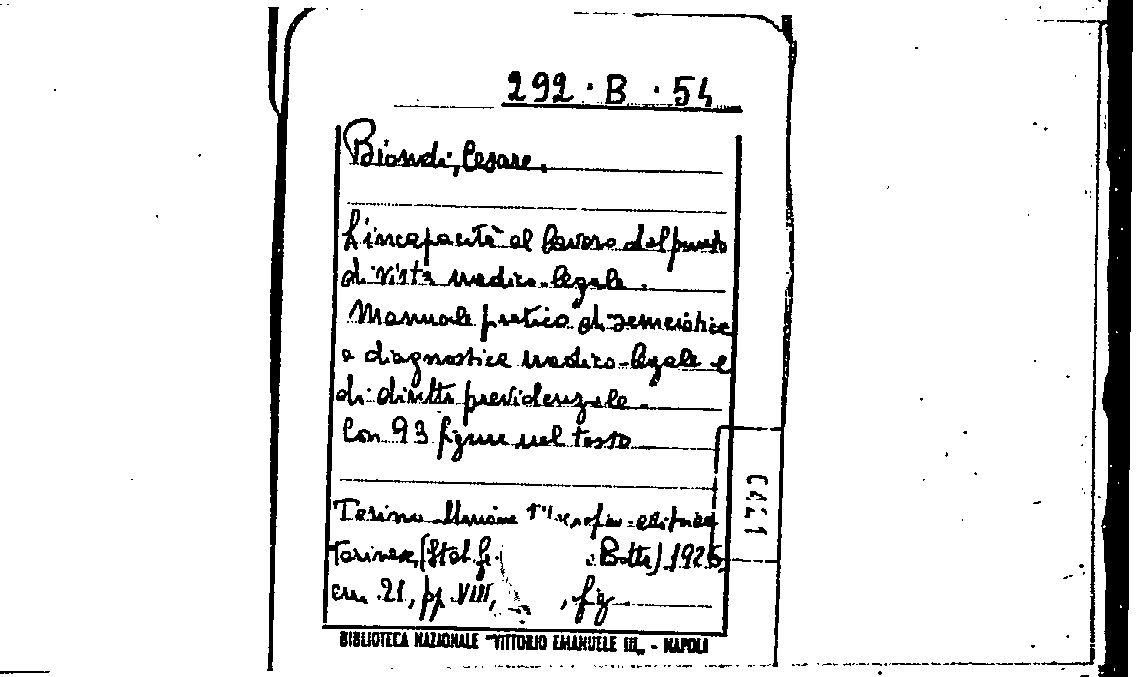 292 · B · 54
Biondi, Cesare.
L'incapacità al lavoro dal punto
di vista medico-legale.
Manuale pratico di semeiotica
e diagnostica medico-legale e
di diritto previdenziale.
Con 93 figure nel testo
Torino Unione Tipografico-editrice
Torinese, (Stab. Botta) 1925,
cm. 21, pp. VIII, , fig
BIBLIOTECA NAZIONALE "VITTORIO EMANUELE III„ - NAPOLI